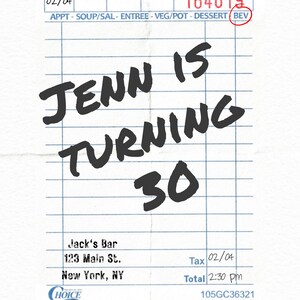 02/04
164015
APPT - SOUP/SAL - ENTREE - VEG/POT - DESSERT - BEV
JENN IS
TURNING
30
Jack's Bar
123 Main St.
New York, NY
Tax 02/04
Total 2:30 pm
CHOICE
105GC36321